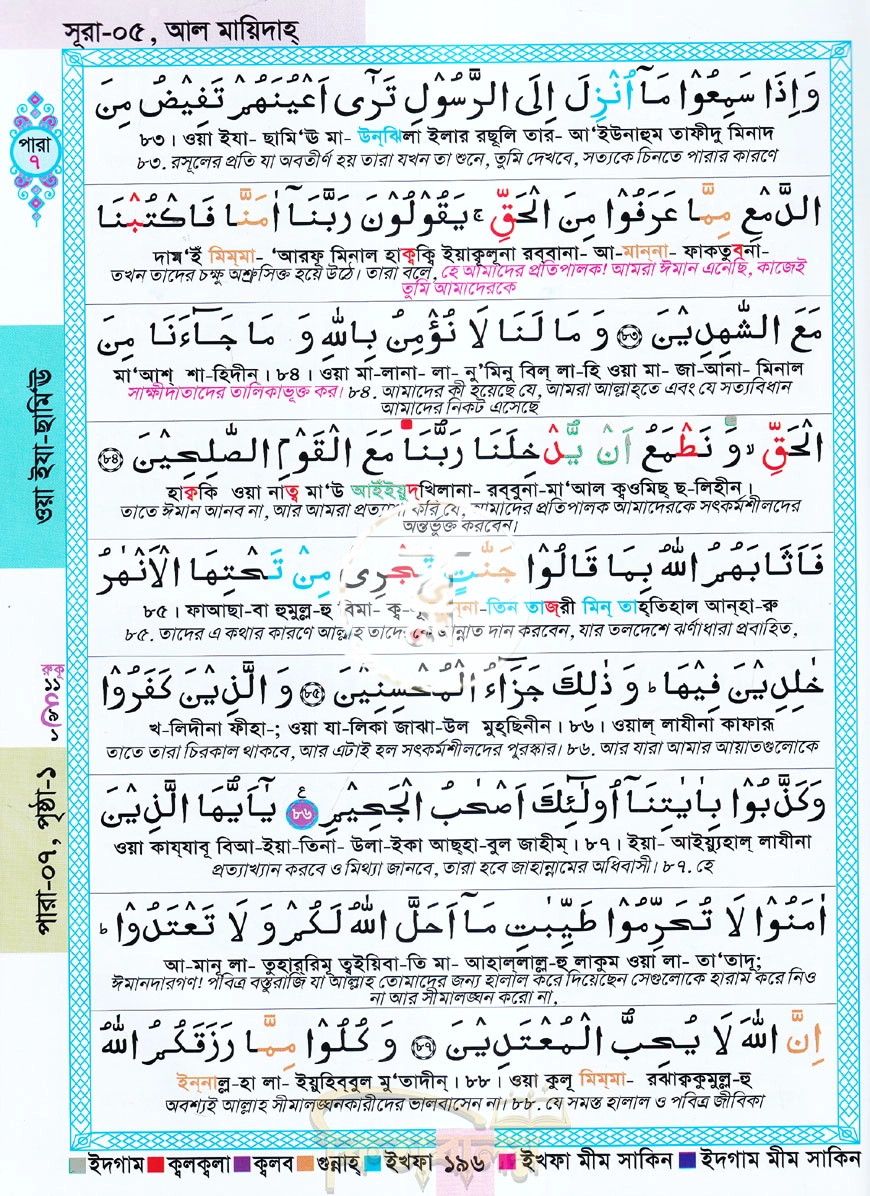 সূরা-০৫, আল মায়িদাহ্
পারা
৭
وَاِذَا سَمِعُوْا مَآ اُنْزِلَ اِلَى الرَّسُوْلِ تَرٰٓى اَعْيُنَهُمْ تَفِيْضُ مِنَ
৮৩। ওয়া ইযা- ছামি‘ঊ মা- উন্‌ঝিলা ইলার রছূলি তার- আ‘ইউনাহুম তাফীদু মিনাদ
৮৩. রসূলের প্রতি যা অবতীর্ণ হয় তারা যখন তা শুনে, তুমি দেখবে, সত্যকে চিনতে পারার কারণে
الدَّمْعِ مِمَّا عَرَفُوْا مِنَ الْحَقِّ ۚ يَقُوْلُوْنَ رَبَّنَآ اٰمَنَّا فَاكْتُبْنَا
দাম‘ই মিম্মা- ‘আরফূ মিনাল হাক্বক্বি ইয়াকূলূনা রব্বানা- আ-মান্না- ফাকতুবনা-
তখন তাদের চক্ষু অশ্রুসিক্ত হয়ে উঠে। তারা বলে, হে আমাদের প্রতিপালক! আমরা ঈমান এনেছি, কাজেই
তুমি আমাদেরকে
مَعَ الشّٰهِدِيْنَ ﴿۸۳﴾ وَ مَا لَنَا لَا نُؤْمِنُ بِاللّٰهِ وَ مَا جَآءَنَا مِنَ
মা‘আশ্ শা-হিদীন। ৮৪। ওয়া মা-লানা- লা- নু’মিনু বিল্ লা-হি ওয়া মা- জা-আনা- মিনাল
সাক্ষীদাতাদের তালিকাভুক্ত কর। ৮৪. আমাদের কী হয়েছে যে, আমরা আল্লাহতে এবং যে সত্যবিধান
আমাদের নিকট এসেছে
ওয়া ইযা-ছামি‘ঊ
الْحَقِّ ۙ وَ نَطْمَعُ اَنْ يُّدْخِلَنَا رَبُّنَا مَعَ الْقَوْمِ الصّٰلِحِيْنَ ﴿۸۴﴾
হাক্বকি ওয়া নাত্ব মা‘উ আইইয়ুদখিলানা- রব্বুনা-মা‘আল ক্বওমিছ ছ-লিহীন।
তাতে ঈমান আনব না, আর আমরা প্রত্যাশা করি যে, আমাদের প্রতিপালক আমাদেরকে সৎকর্মশীলদের
অন্তর্ভুক্ত করবেন।
فَاَثَابَهُمُ اللّٰهُ بِمَا قَالُوْا جَنّٰتٍ تَجْرِيْ مِنْ تَحْتِهَا الْاَنْهٰرُ
৮৫। ফাআছা-বা হুমুল্ল-হু বিমা- ক্ব- না-তিন তাজ্‌রী মিন্ তাহ্‌তিহাল আন্‌হা-রু
৮৫. তাদের এ কথার কারণে আল্লাহ তাদেরকে জান্নাত দান করবেন, যার তলদেশে ঝর্ণাধারা প্রবাহিত,
রুকু
خٰلِدِيْنَ فِيْهَا ؕ وَ ذٰلِكَ جَزَآءُ الْمُحْسِنِيْنَ ﴿۸۵﴾ وَ الَّذِيْنَ كَفَرُوْا
খ-লিদীনা ফীহা-; ওয়া যা-লিকা জাঝা-উল মুহ্‌ছিনীন। ৮৬। ওয়াল্ লাযীনা কাফারূ
তাতে তারা চিরকাল থাকবে, আর এটাই হল সৎকর্মশীলদের পুরস্কার। ৮৬. আর যারা আমার আয়াতগুলোকে
পারা-০৭, পৃষ্ঠা-১
وَكَذَّبُوْا بِاٰيٰتِنَآ اُولٰٓئِكَ اَصْحٰبُ الْجَحِيْمِ ع ৮৬ يٰٓاَيُّهَا الَّذِيْنَ
ওয়া কায্‌যাবূ বিআ-ইয়া-তিনা- উলা-ইকা আছ্‌হা-বুল জাহীম্। ৮৭। ইয়া- আইয়্যুহাল্ লাযীনা
প্রত্যাখ্যান করবে ও মিথ্যা জানবে, তারা হবে জাহান্নামের অধিবাসী। ৮৭. হে
اٰمَنُوْا لَا تُحَرِّمُوْا طَيِّبٰتِ مَآ اَحَلَّ اللّٰهُ لَكُمْ وَ لَا تَعْتَدُوْا ؕ
আ-মানূ লা- তুহার্‌রিমূ ত্বইয়িবা-তি মা- আহাল্লাল্ল-হু লাকুম ওয়া লা- তা‘তাদূ;
ঈমানদারগণ! পবিত্র বস্তুরাজি যা আল্লাহ তোমাদের জন্য হালাল করে দিয়েছেন সেগুলোকে হারাম করে নিও
না আর সীমালঙ্ঘন করো না,
اِنَّ اللّٰهَ لَا يُحِبُّ الْمُعْتَدِيْنَ ﴿۸۷﴾ وَ كُلُوْا مِمَّا رَزَقَكُمُ اللّٰهُ
ইন্‌নাল্ল-হা লা- ইয়ুহিব্‌বুল মু‘তাদীন। ৮৮। ওয়া কুলূ মিম্‌মা- রঝাক্বকুমুল্ল-হু
অবশ্যই আল্লাহ সীমালঙ্ঘনকারীদের ভালবাসেন না। ৮৮. যে সমস্ত হালাল ও পবিত্র জীবিকা
ইদগাম ক্বলক্বলা ক্বলব গুন্নাহ্ ইখফা ১৯৬ ইখফা মীম সাকিন ইদগাম মীম সাকিন